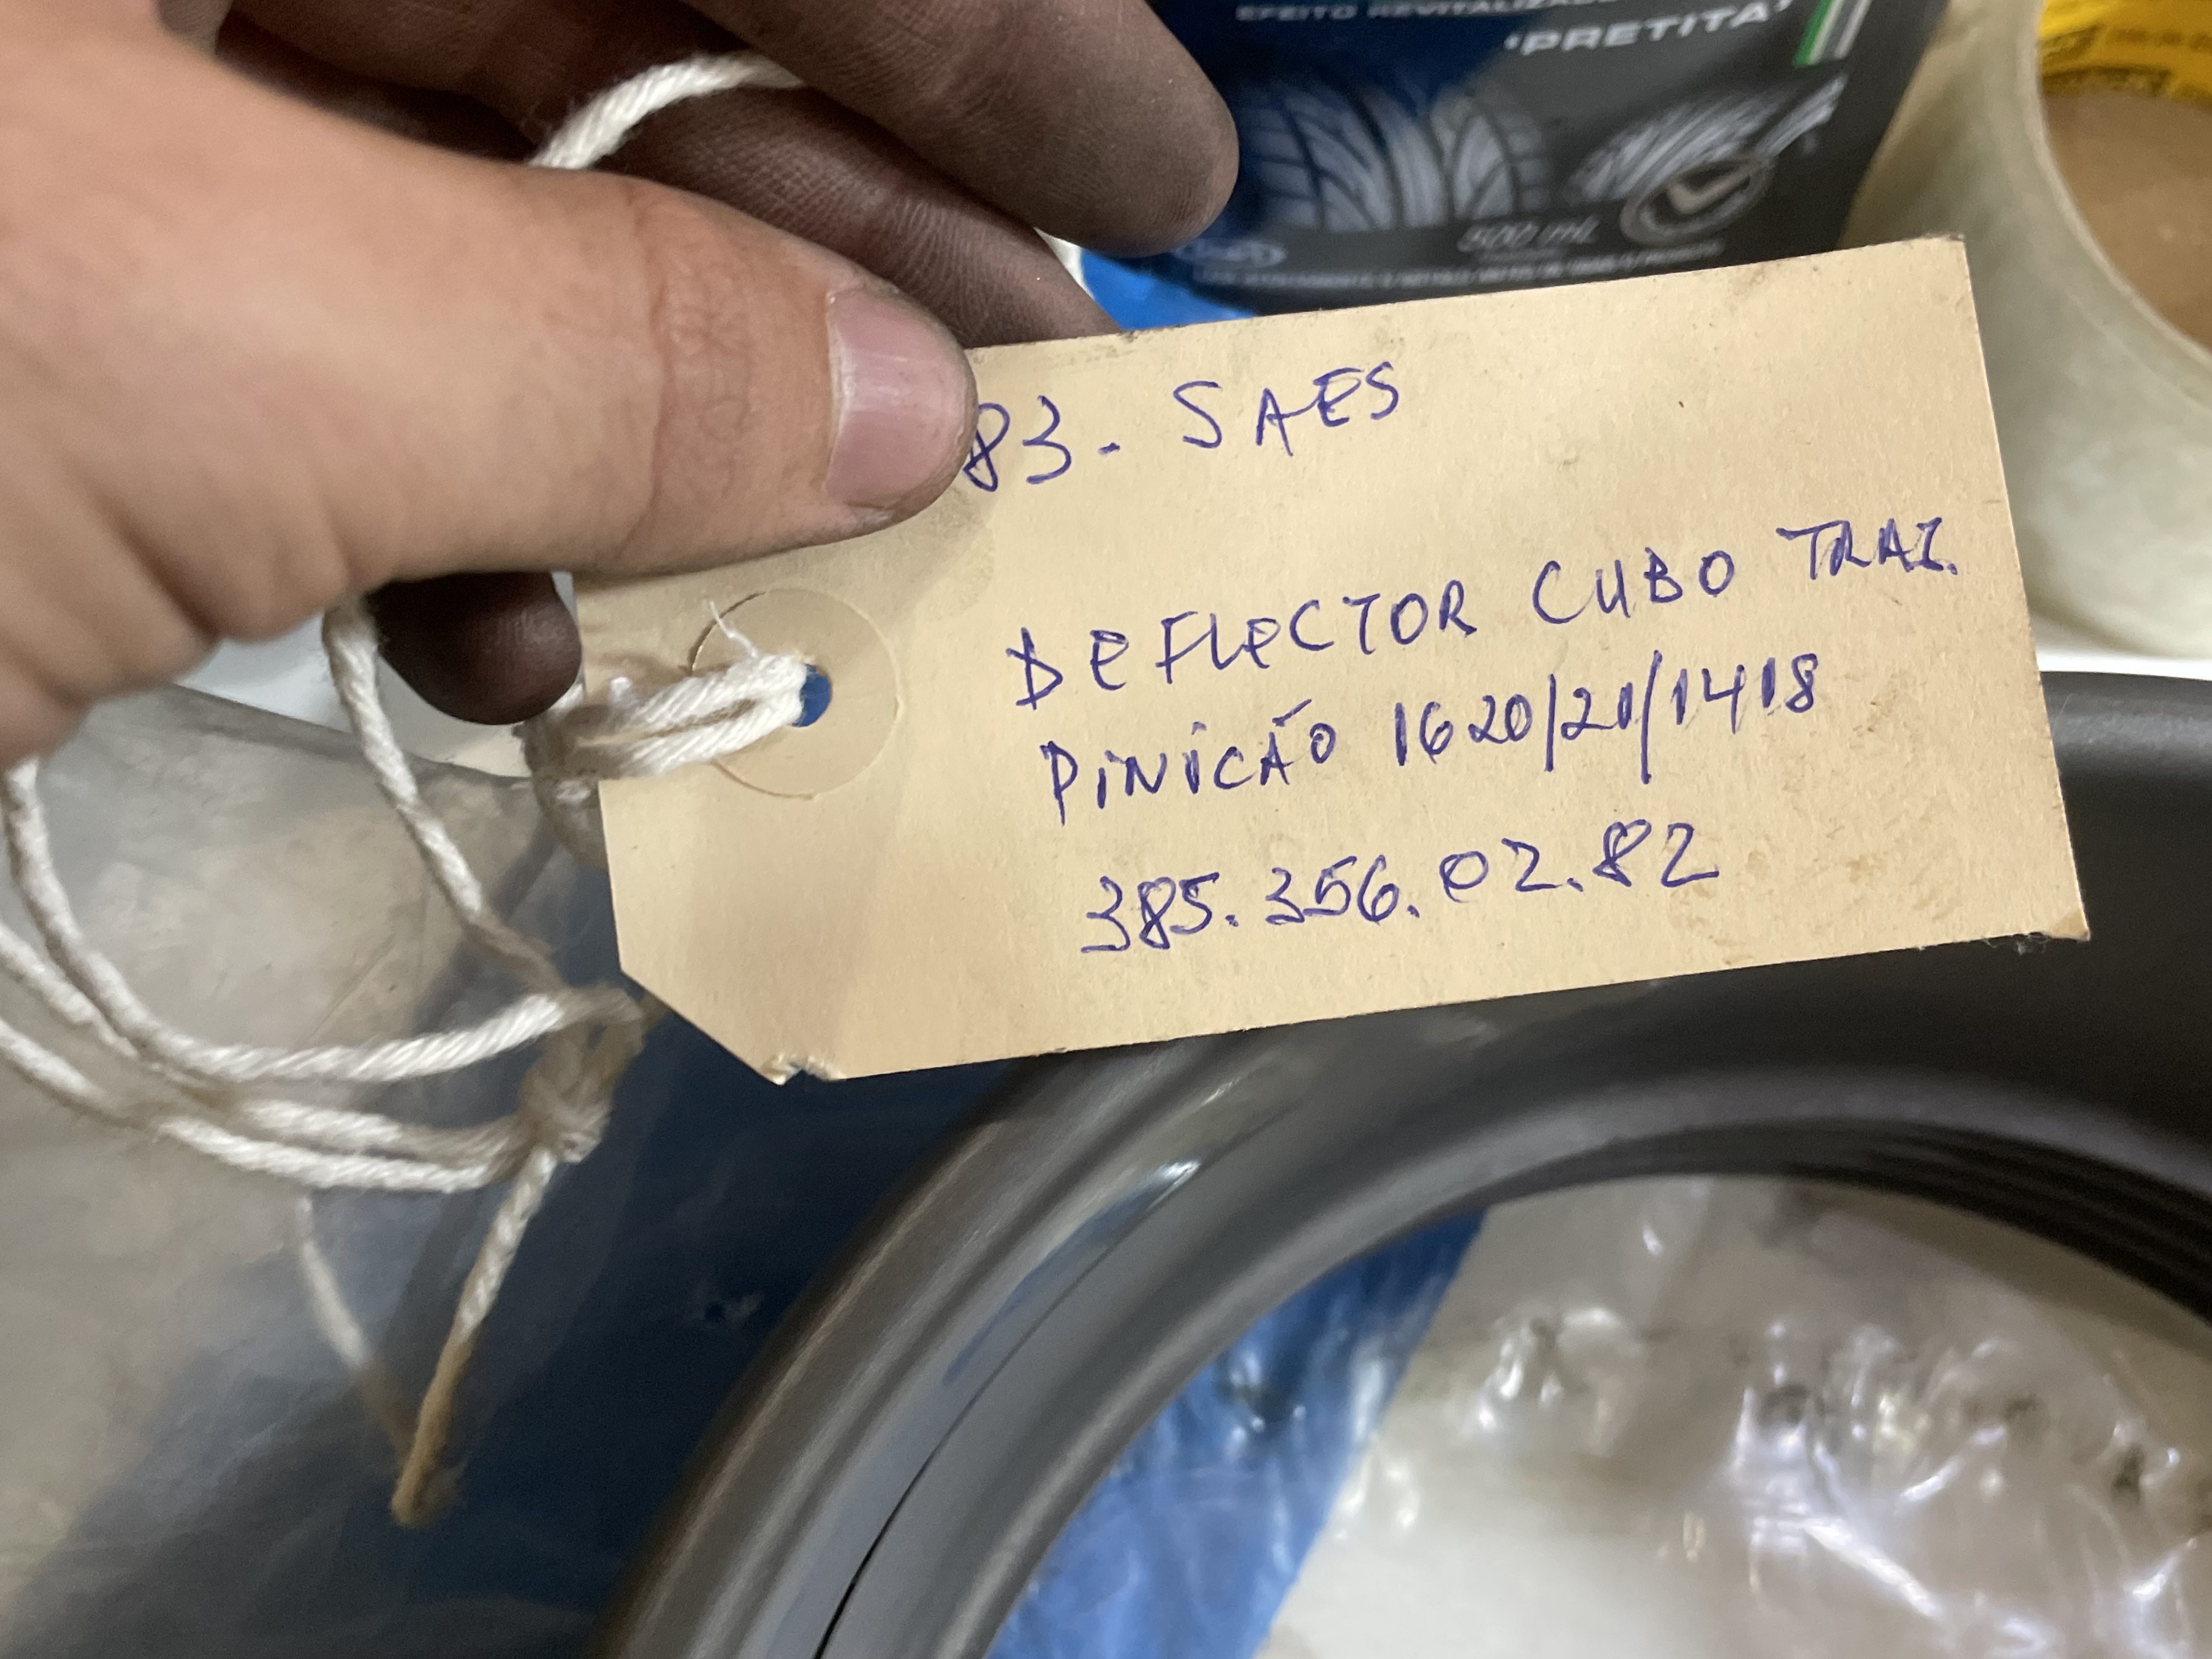 'PRETITA'
500 mL
83 - SAES
DEFLECTOR CUBO TRAZ.
PINICÃO 1620/21/1418
385.356.02.82